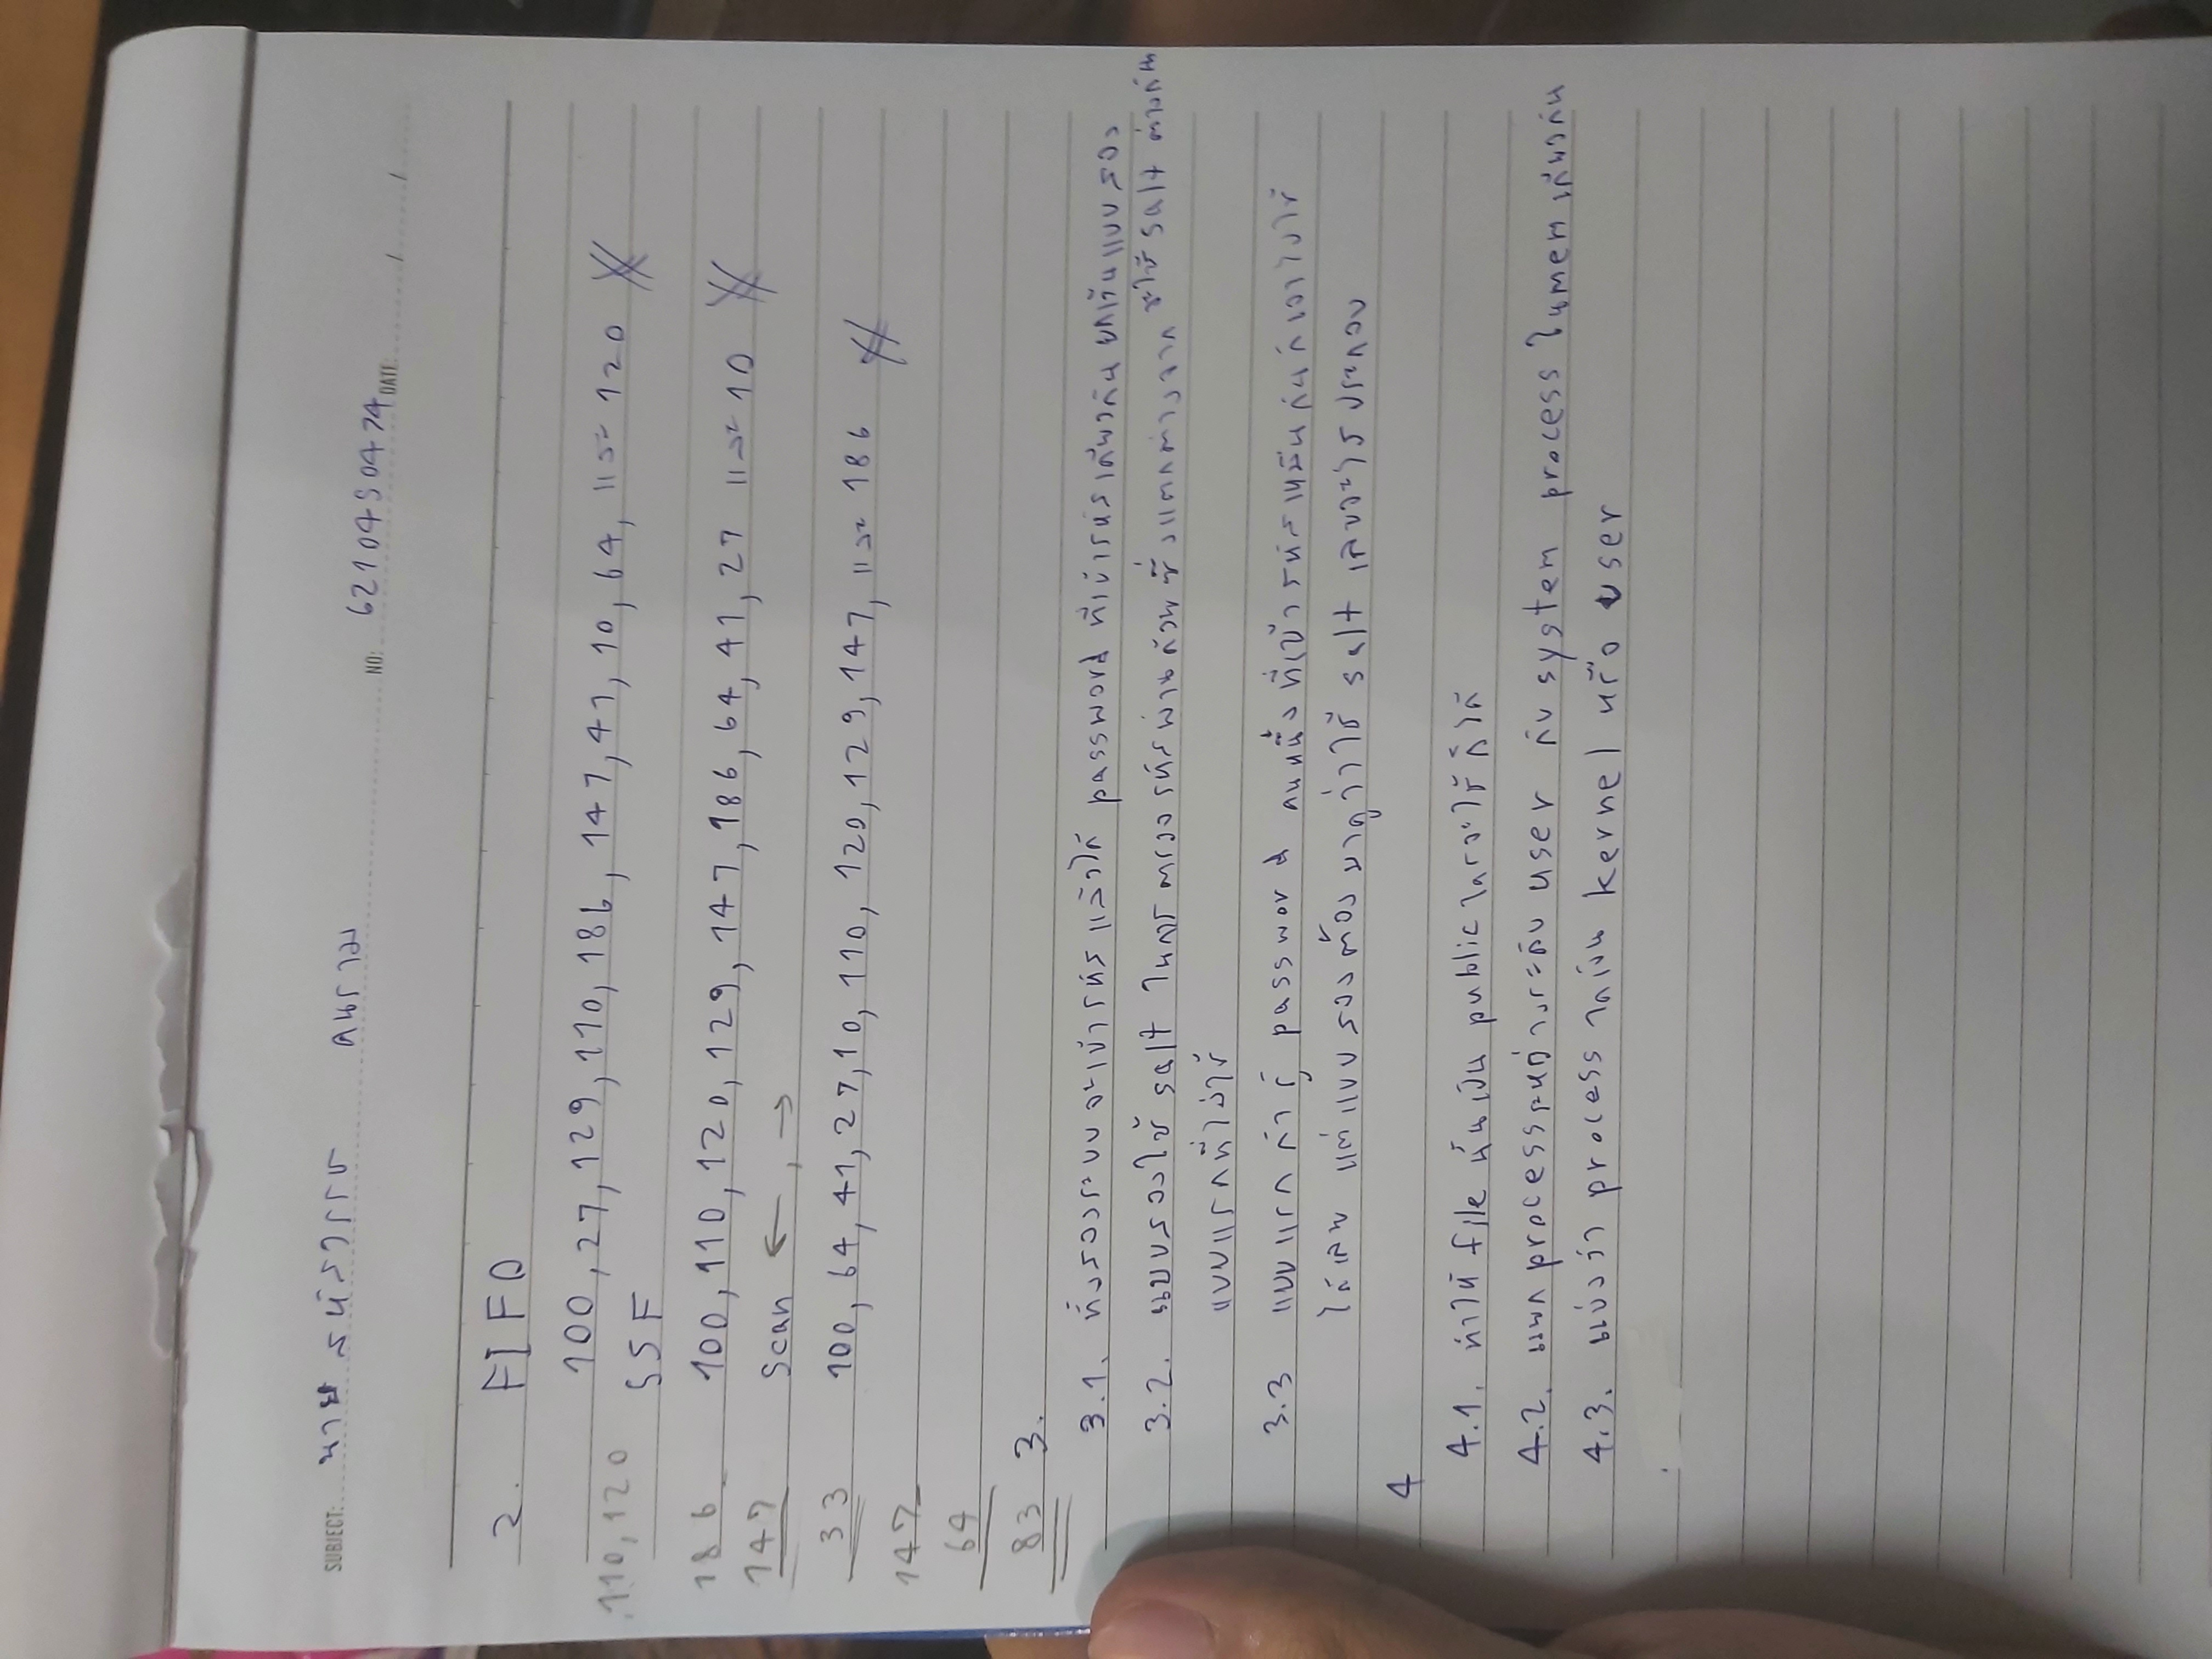 SUBJECT: นาย สหัสวรรษ คนราม
NO: 6210450474 DATE / /
2. FIFO
100, 27, 129, 110, 186, 147, 41, 10, 64, และ 120
110, 120
SSF
186
100, 110, 120, 129, 147, 186, 64, 41, 27 และ 10
147
Scan ← , →
33
100, 64, 41, 27, 10, 110, 120, 129, 147, และ 186
147
64
83
3.
3.1. ทั้งสองระบบจะเข้ารหัสแล้วได้ password ที่เข้ารหัสเดียวกัน ยกเว้นแบบสอง
จะใช้ salt ต่างกัน
3.2. แบบสองใช้ salt ในการตรวจรหัสผ่านด้วย ซึ่งแตกต่างจาก
แบบแรกที่ไม่ใช้
3.3 แบบแรก ถ้ารู้ password คนหนึ่งที่เข้ารหัสเหมือนกันก็เอาไปใช้
ได้เลย แต่แบบสองต้องมาดูว่าใช้ salt เลขอะไรประกอบ
4
4.1. ทำให้ file นั้นเป็น public ใครจะใช้ก็ได้
4.2. แยก process ระหว่างระดับ user กับ system process ใน mem เดียวกัน
4.3. แบ่งว่า process ใดเป็น kernel หรือ user